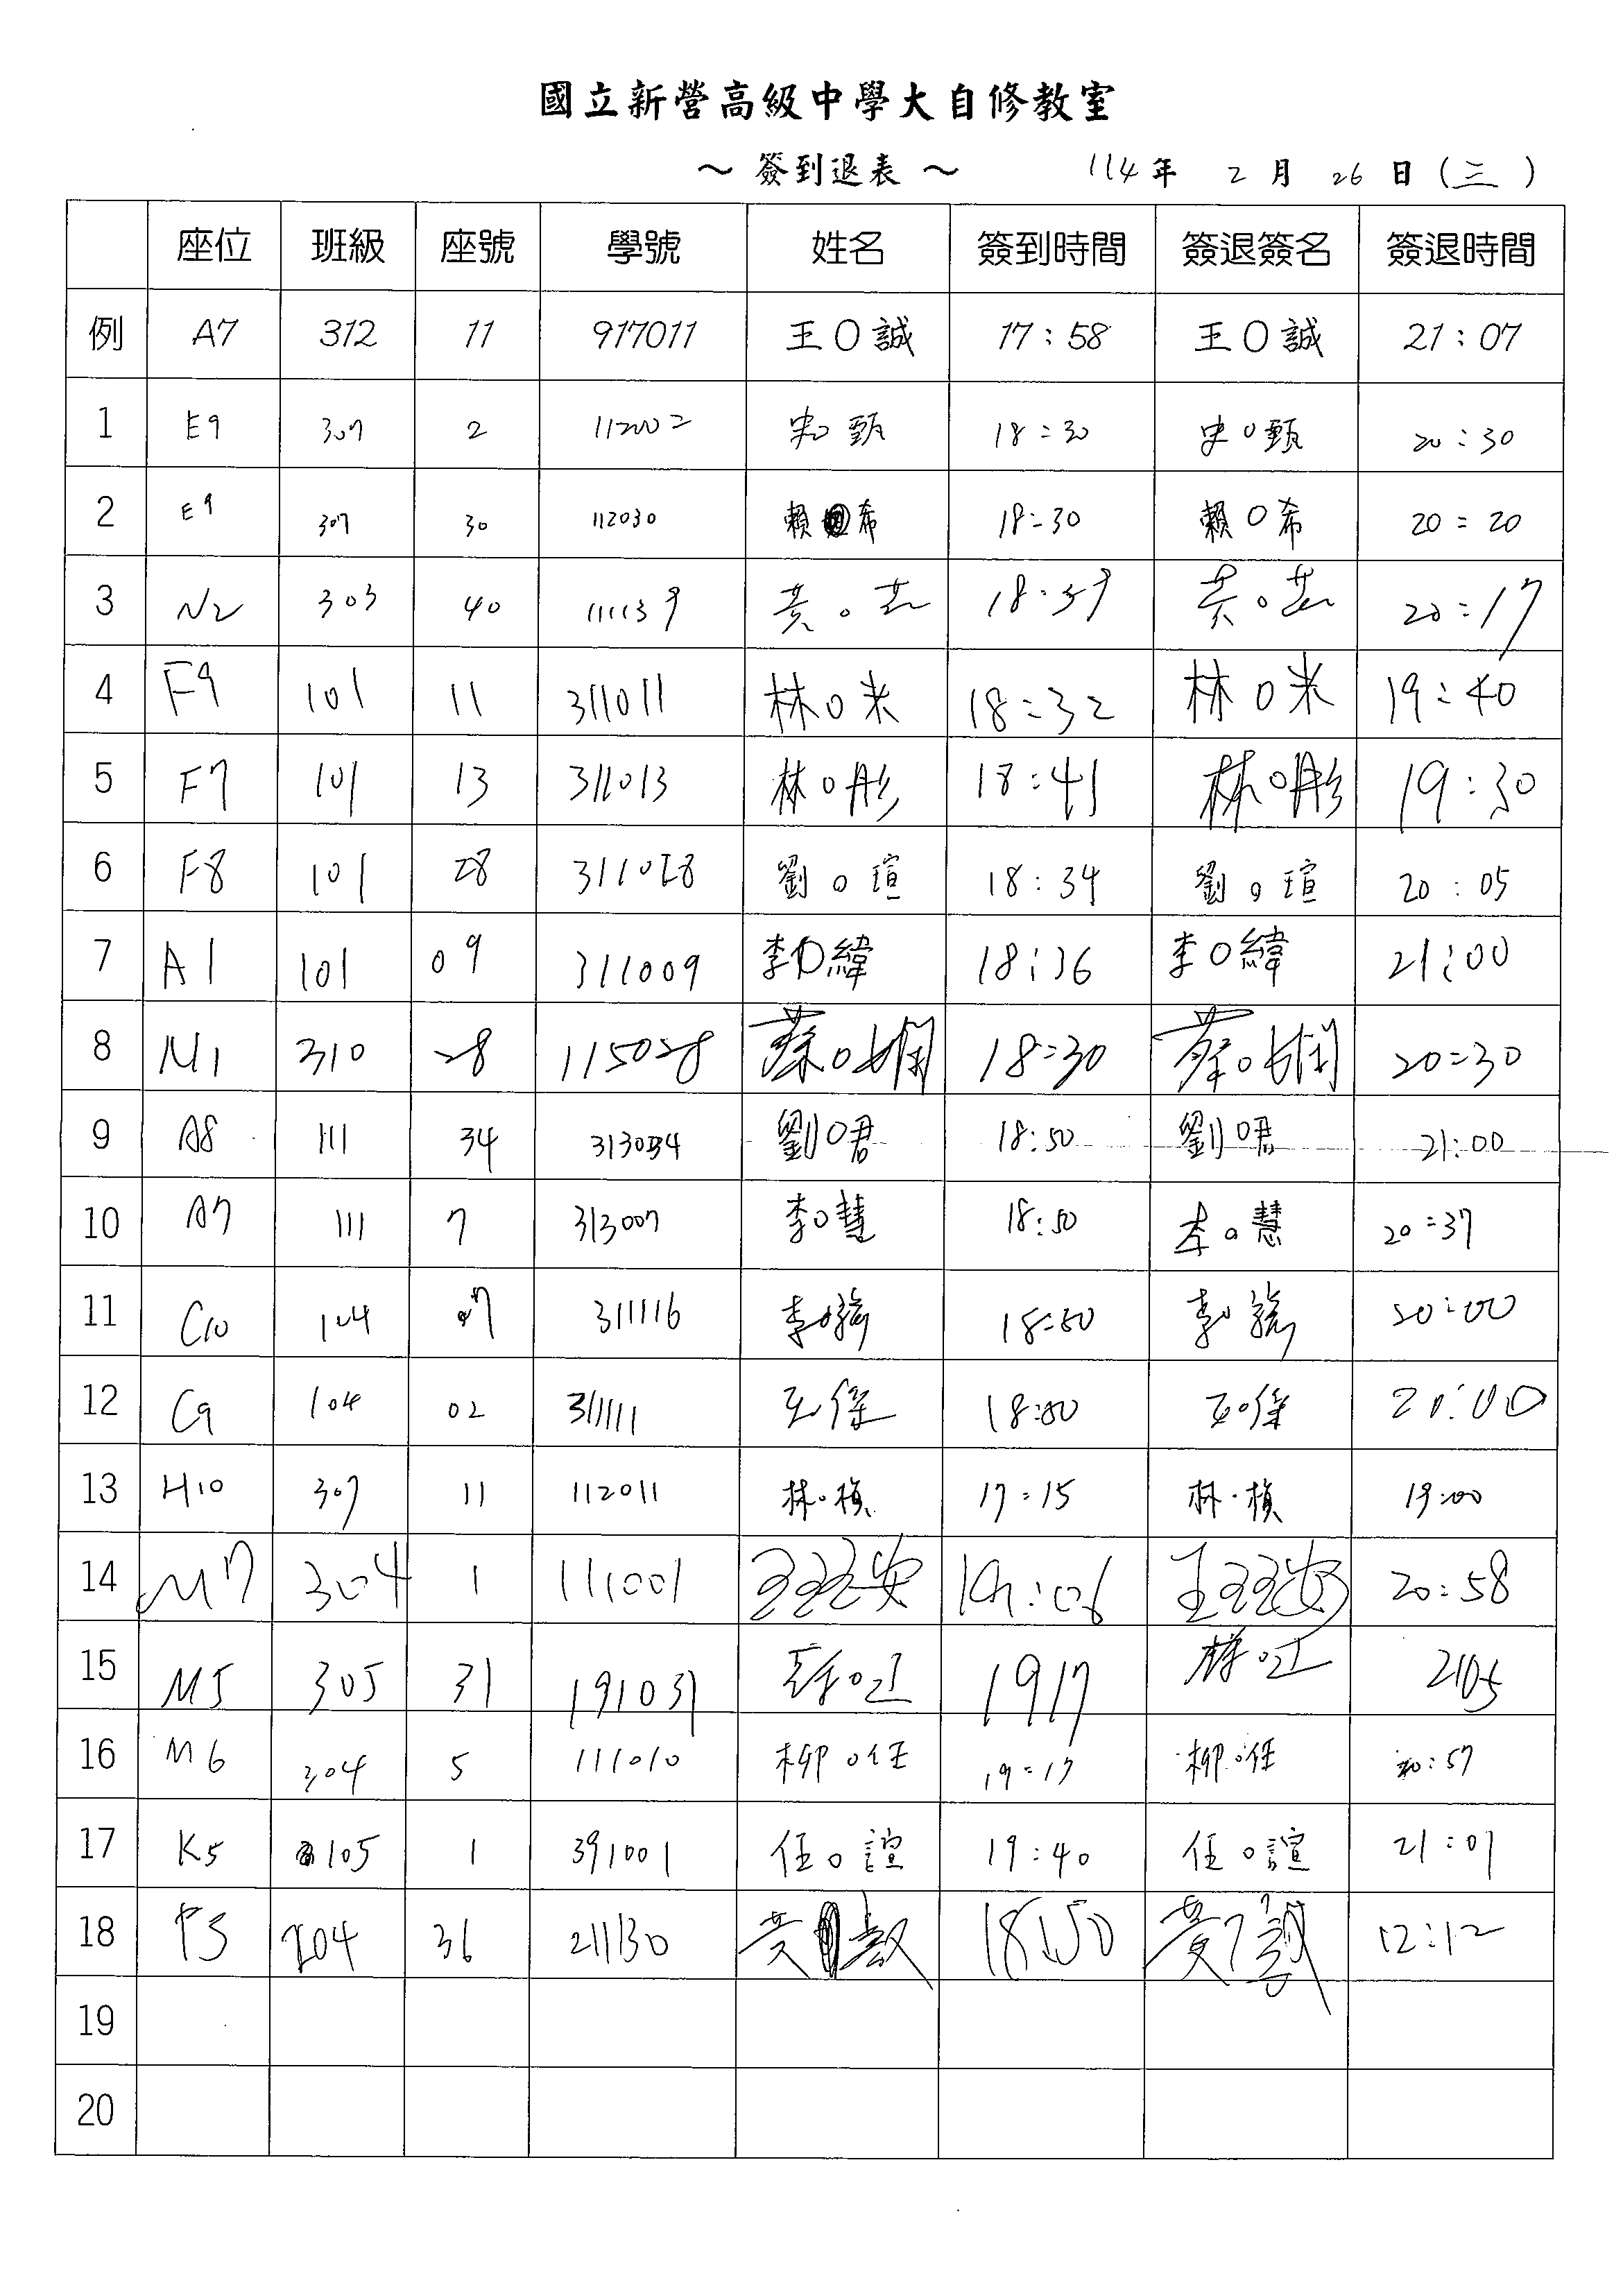 國立新營高級中學大自修教室
～ 簽到退表 ～ 114年 2月 26日(三)
座位 班級 座號 學號 姓名 簽到時間 簽退簽名 簽退時間
例 A7 312 11 917011 王○誠 17:58 王○誠 21:07
1 E9 307 2 112002 甄 18:30 史○甄 20:30
2 E9 307 30 112030 賴 希 18:30 賴○希 20:20
3 N2 303 40 111139 黃○ 18:59 黃○ 20:17
4 F9 101 11 311011 林○米 18:32 林○米 19:40
5 F7 101 13 311013 林○彤 18:41 林○彤 19:30
6 F8 101 28 311028 劉○瑄 18:34 劉○瑄 20:05
7 A1 101 09 311009 李○緯 18:36 李○緯 21:00
8 M1 310 28 115028 蔡○嫻 18:30 蔡○嫻 20:30
9 A8 111 34 313034 劉○君 18:50 劉○君 21:00
10 A7 111 7 313007 李○慧 18:50 李○慧 20:37
11 C10 104 07 311116 李○ 18:50 李○ 20:00
12 C9 104 02 311111 18:50 20:00
13 H10 307 11 112011 林○楨 17:15 林·楨 19:00
14 M7 304 1 111001 19:06 20:58
15 M5 305 31 191031 1917 2105
16 M6 304 5 111010 柳○任 19:17 柳○任 20:57
17 K5 105 1 391001 任○誼 19:40 任○誼 21:01
18 204 36 211130 黃 18:50 黃 12:12
19
20